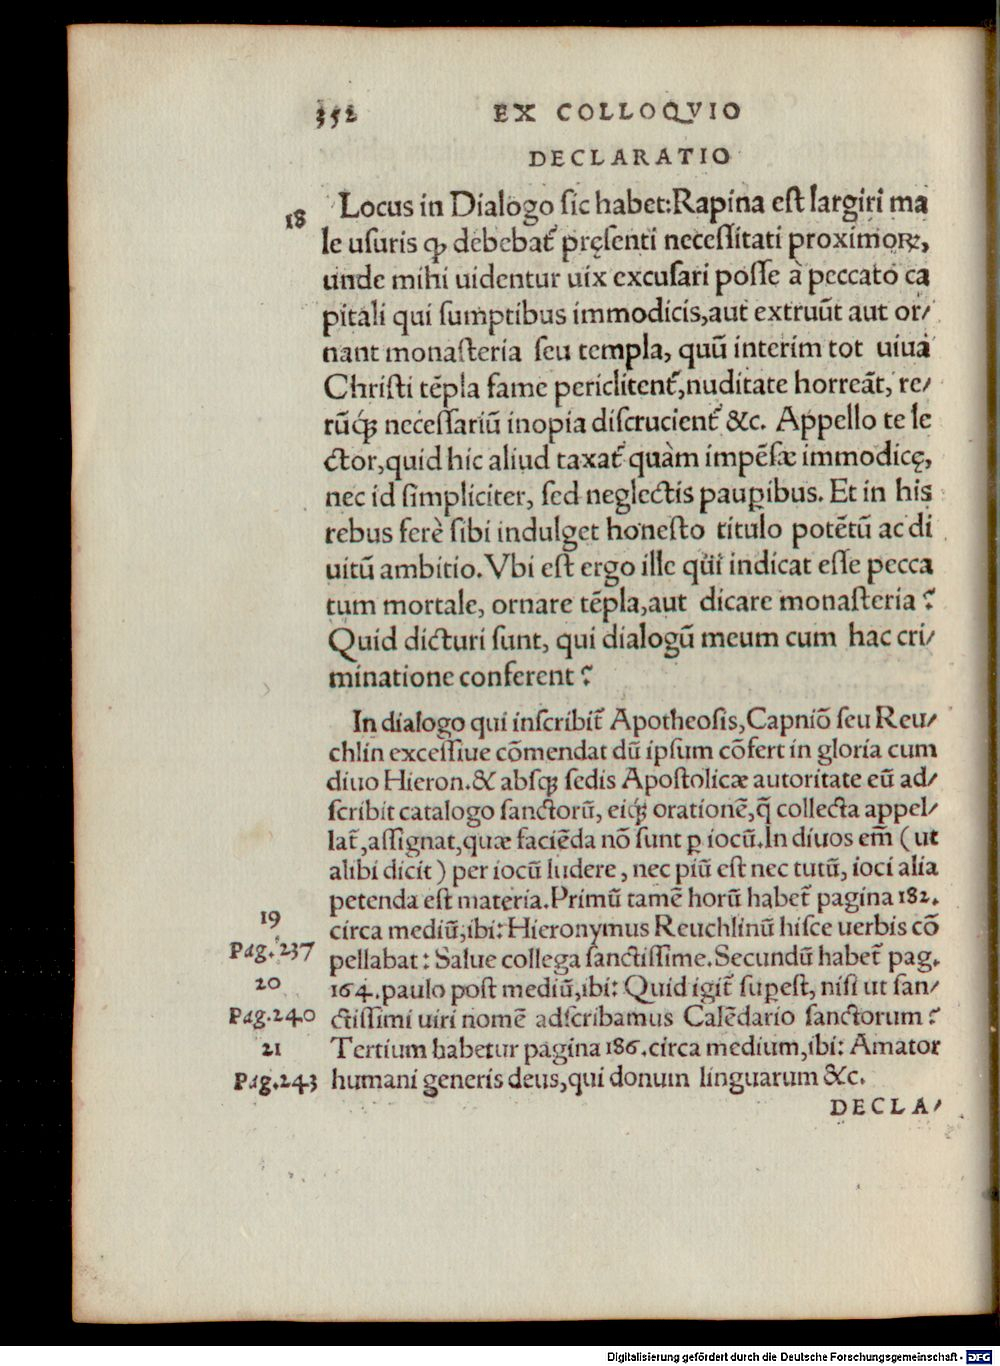 352 EX COLLOQVIO
DECLARATIO
18 Locus in Dialogo ſic habet: Rapina eſt largiri ma
le uſuris ꝙ debebat᷑ pręſenti neceſſitati proximoꝝ,
unde mihi uidentur uix excuſari poſſe à peccato ca
pitali qui ſumptibus immodicis, aut extruūt aut or/
nant monaſteria ſeu templa, quū interim tot uiua
Chriſti tēpla fame periclitent᷑, nuditate horreāt, re/
rūq́ꝫ neceſſariū inopia diſcrucient᷑ &c. Appello te le
ctor, quid hic aliud taxat᷑ quàm impēſæ immodicę,
nec id ſimpliciter, ſed neglectis paupibus. Et in his
rebus ferè ſibi indulget honeſto titulo potētū ac di
uitū ambitio. Vbi eſt ergo ille qui indicat eſſe pecca
tum mortale, ornare tēpla, aut dicare monaſteria?
Quid dicturi ſunt, qui dialogū meum cum hac cri/
minatione conferent?
In dialogo qui inſcribit᷑ Apotheoſis, Capniō ſeu Reu/
chlin exceſſiue cōmendat dū ipſum cōfert in gloria cum
diuo Hieron. & abſqꝫ ſedis Apoſtolicæ autoritate eū ad/
ſcribit catalogo ſanctorū, eiq́ꝫ orationē, q̄ collecta appel/
lat᷑, aſſignat, quæ faciēda nō ſunt ꝑ iocū. In diuos em̄ (ut
alibi dicit) per iocū ludere, nec piū eſt nec tutū, ioci alia
petenda eſt materia. Primū tamē horū habet᷑ pagina 182.
19 circa mediū, ibi: Hieronymus Reuchlinū hiſce uerbis cō
Pag. 237 pellabat: Salue collega ſanctiſſime. Secundū habet᷑ pag.
20 164. paulo poſt mediū, ibi: Quid igit᷑ ſuꝑeſt, niſi ut ſan/
Pag. 240 ctiſſimi uiri nomē adſcribamus Calēdario ſanctorum?
21 Tertium habetur pagina 186. circa medium, ibi: Amator
Pag. 243 humani generis deus, qui donum linguarum &c.
DECLA/
Digitalisierung gefördert durch die Deutsche Forschungsgemeinschaft - DFG